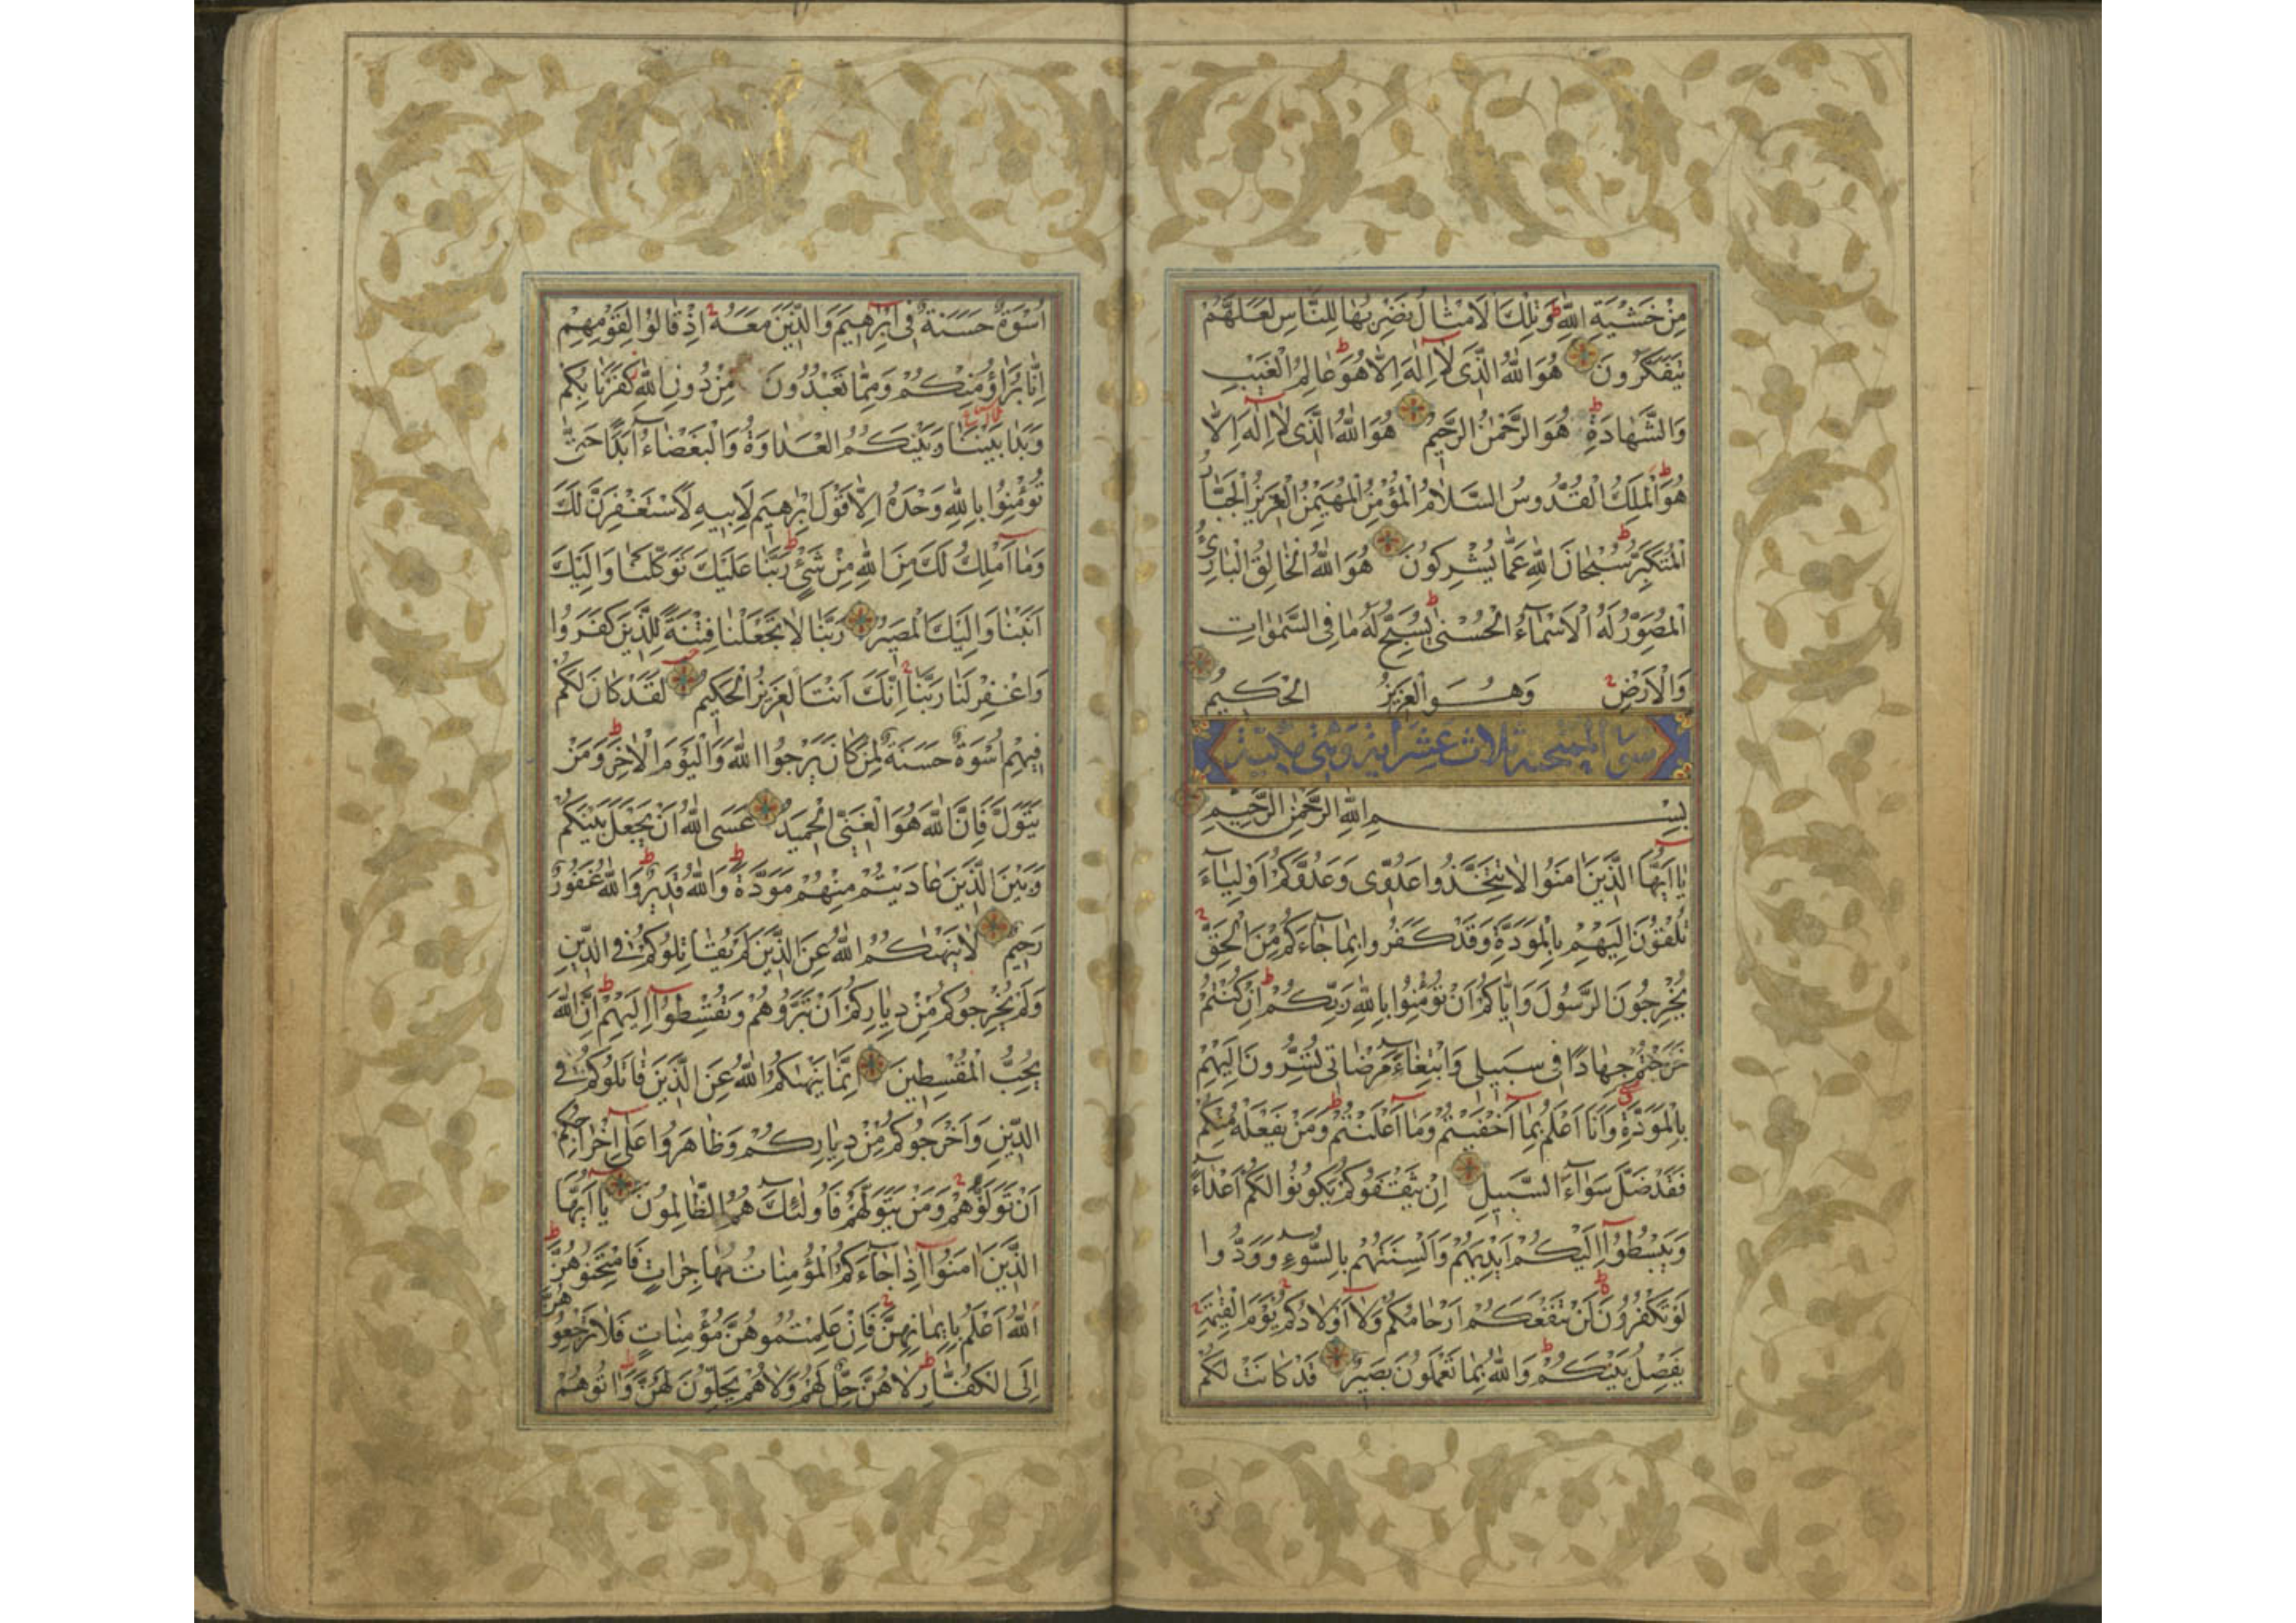 مِنْ خَشْيَةِ اللّٰهِ وَتِلْكَ الْاَمْثَالُ نَضْرِبُهَا لِلنَّاسِ لَعَلَّهُمْ
يَتَفَكَّرُونَ هُوَ اللّٰهُ الَّذِى لَا اِلٰهَ اِلَّا هُوَ عَالِمُ الْغَيْبِ
وَالشَّهَادَةِ هُوَ الرَّحْمٰنُ الرَّحِيمُ هُوَ اللّٰهُ الَّذِى لَا اِلٰهَ اِلَّا
هُوَ الْمَلِكُ الْقُدُّوسُ السَّلَامُ الْمُؤْمِنُ الْمُهَيْمِنُ الْعَزِيزُ الْجَبَّارُ
الْمُتَكَبِّرُ سُبْحَانَ اللّٰهِ عَمَّا يُشْرِكُونَ هُوَ اللّٰهُ الْخَالِقُ الْبَارِئُ
الْمُصَوِّرُ لَهُ الْاَسْمَاءُ الْحُسْنٰى يُسَبِّحُ لَهُ مَا فِى السَّمٰوَاتِ
وَالْاَرْضِ وَهُوَ الْعَزِيزُ الْحَكِيمُ
سورة الممتحنة ثلاث عشر اية وهى مدنية
بِسْمِ اللّٰهِ الرَّحْمٰنِ الرَّحِيمِ
يَا اَيُّهَا الَّذِينَ اٰمَنُوا لَا تَتَّخِذُوا عَدُوِّى وَعَدُوَّكُمْ اَوْلِيَاءَ
تُلْقُونَ اِلَيْهِمْ بِالْمَوَدَّةِ وَقَدْ كَفَرُوا بِمَا جَاءَكُمْ مِنَ الْحَقِّ
يُخْرِجُونَ الرَّسُولَ وَاِيَّاكُمْ اَنْ تُؤْمِنُوا بِاللّٰهِ رَبِّكُمْ اِنْ كُنْتُمْ
خَرَجْتُمْ جِهَادًا فِى سَبِيلِى وَابْتِغَاءَ مَرْضَاتِى تُسِرُّونَ اِلَيْهِمْ
بِالْمَوَدَّةِ وَاَنَا اَعْلَمُ بِمَا اَخْفَيْتُمْ وَمَا اَعْلَنْتُمْ وَمَنْ يَفْعَلْهُ مِنْكُمْ
فَقَدْ ضَلَّ سَوَاءَ السَّبِيلِ اِنْ يَثْقَفُوكُمْ يَكُونُوا لَكُمْ اَعْدَاءً
وَيَبْسُطُوا اِلَيْكُمْ اَيْدِيَهُمْ وَاَلْسِنَتَهُمْ بِالسُّوءِ وَوَدُّوا
لَوْ تَكْفُرُونَ لَنْ تَنْفَعَكُمْ اَرْحَامُكُمْ وَلَا اَوْلَادُكُمْ يَوْمَ الْقِيٰمَةِ
يَفْصِلُ بَيْنَكُمْ وَاللّٰهُ بِمَا تَعْمَلُونَ بَصِيرٌ قَدْ كَانَتْ لَكُمْ
اُسْوَةٌ حَسَنَةٌ فِى اِبْرٰهِيمَ وَالَّذِينَ مَعَهُ اِذْ قَالُوا لِقَوْمِهِمْ
اِنَّا بُرَاؤُ مِنْكُمْ وَمِمَّا تَعْبُدُونَ مِنْ دُونِ اللّٰهِ كَفَرْنَا بِكُمْ
وَبَدَا بَيْنَنَا وَبَيْنَكُمُ الْعَدَاوَةُ وَالْبَغْضَاءُ اَبَدًا حَتّٰى
تُؤْمِنُوا بِاللّٰهِ وَحْدَهُ اِلَّا قَوْلَ اِبْرٰهِيمَ لِاَبِيهِ لَاَسْتَغْفِرَنَّ لَكَ
وَمَا اَمْلِكُ لَكَ مِنَ اللّٰهِ مِنْ شَىْءٍ رَبَّنَا عَلَيْكَ تَوَكَّلْنَا وَاِلَيْكَ
اَنَبْنَا وَاِلَيْكَ الْمَصِيرُ رَبَّنَا لَا تَجْعَلْنَا فِتْنَةً لِلَّذِينَ كَفَرُوا
وَاغْفِرْ لَنَا رَبَّنَا اِنَّكَ اَنْتَ الْعَزِيزُ الْحَكِيمُ لَقَدْ كَانَ لَكُمْ
فِيهِمْ اُسْوَةٌ حَسَنَةٌ لِمَنْ كَانَ يَرْجُوا اللّٰهَ وَالْيَوْمَ الْاٰخِرَ وَمَنْ
يَتَوَلَّ فَاِنَّ اللّٰهَ هُوَ الْغَنِىُّ الْحَمِيدُ عَسَى اللّٰهُ اَنْ يَجْعَلَ بَيْنَكُمْ
وَبَيْنَ الَّذِينَ عَادَيْتُمْ مِنْهُمْ مَوَدَّةً وَاللّٰهُ قَدِيرٌ وَاللّٰهُ غَفُورٌ
رَحِيمٌ لَا يَنْهٰيكُمُ اللّٰهُ عَنِ الَّذِينَ لَمْ يُقَاتِلُوكُمْ فِى الدِّينِ
وَلَمْ يُخْرِجُوكُمْ مِنْ دِيَارِكُمْ اَنْ تَبَرُّوهُمْ وَتُقْسِطُوا اِلَيْهِمْ اِنَّ اللّٰهَ
يُحِبُّ الْمُقْسِطِينَ اِنَّمَا يَنْهٰيكُمُ اللّٰهُ عَنِ الَّذِينَ قَاتَلُوكُمْ فِى
الدِّينِ وَاَخْرَجُوكُمْ مِنْ دِيَارِكُمْ وَظَاهَرُوا عَلٰى اِخْرَاجِكُمْ
اَنْ تَوَلَّوْهُمْ وَمَنْ يَتَوَلَّهُمْ فَاُولٰئِكَ هُمُ الظَّالِمُونَ يَا اَيُّهَا
الَّذِينَ اٰمَنُوا اِذَا جَاءَكُمُ الْمُؤْمِنَاتُ مُهَاجِرَاتٍ فَامْتَحِنُوهُنَّ
اَللّٰهُ اَعْلَمُ بِاِيمَانِهِنَّ فَاِنْ عَلِمْتُمُوهُنَّ مُؤْمِنَاتٍ فَلَا تَرْجِعُوهُنَّ
اِلَى الْكُفَّارِ لَا هُنَّ حِلٌّ لَهُمْ وَلَا هُمْ يَحِلُّونَ لَهُنَّ وَاٰتُوهُمْ